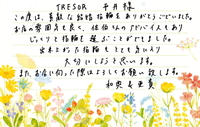 TRESOR 平井様
この度は、素敵な結婚指輪をありがとうございました。
お店の雰囲気も良く、佐伯さんのアドバイスもあり
じっくりと指輪を選ぶことができました。
出来上がった指輪もとても気に入り
大切にしようと思います。
また、お店に伺った際はよろしくお願い致します。
和史